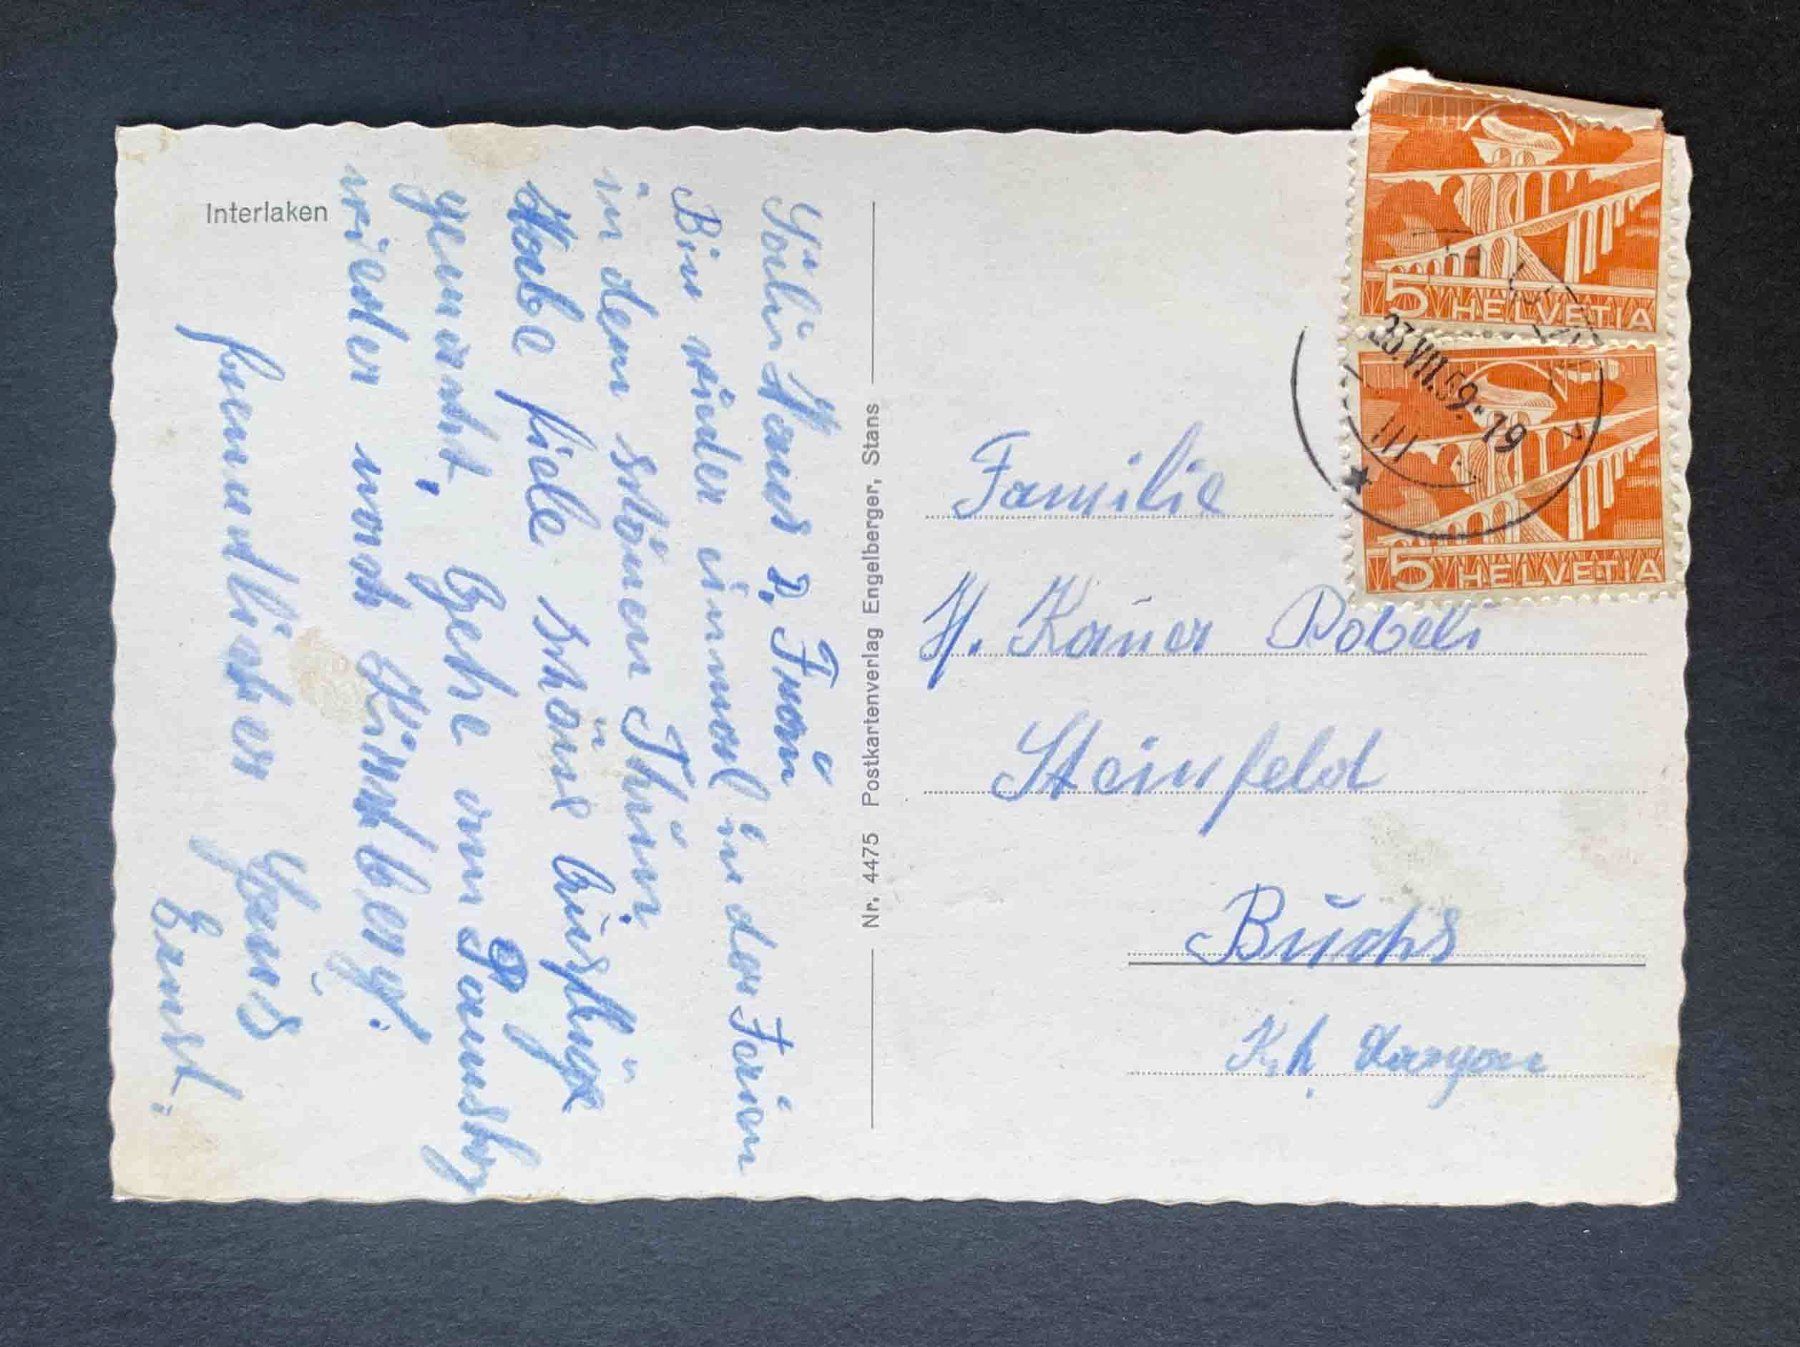 Interlaken
Sali Hans &, Frau
Bin wieder einmal in den Ferien
in dem schönen Thun.
Habe fiele schöne Ausflüge
gemacht, Gehe am Samstag
wieder nach
freundlicher Gruss
Ernst.
Nr. 4475 Postkartenverlag Engelberger, Stans
5 HELVETIA
5 HELVETIA
23.VII.59.-19
III
Familie
H. Kauer
Steinfeld
Buchs
Kt. Aargau